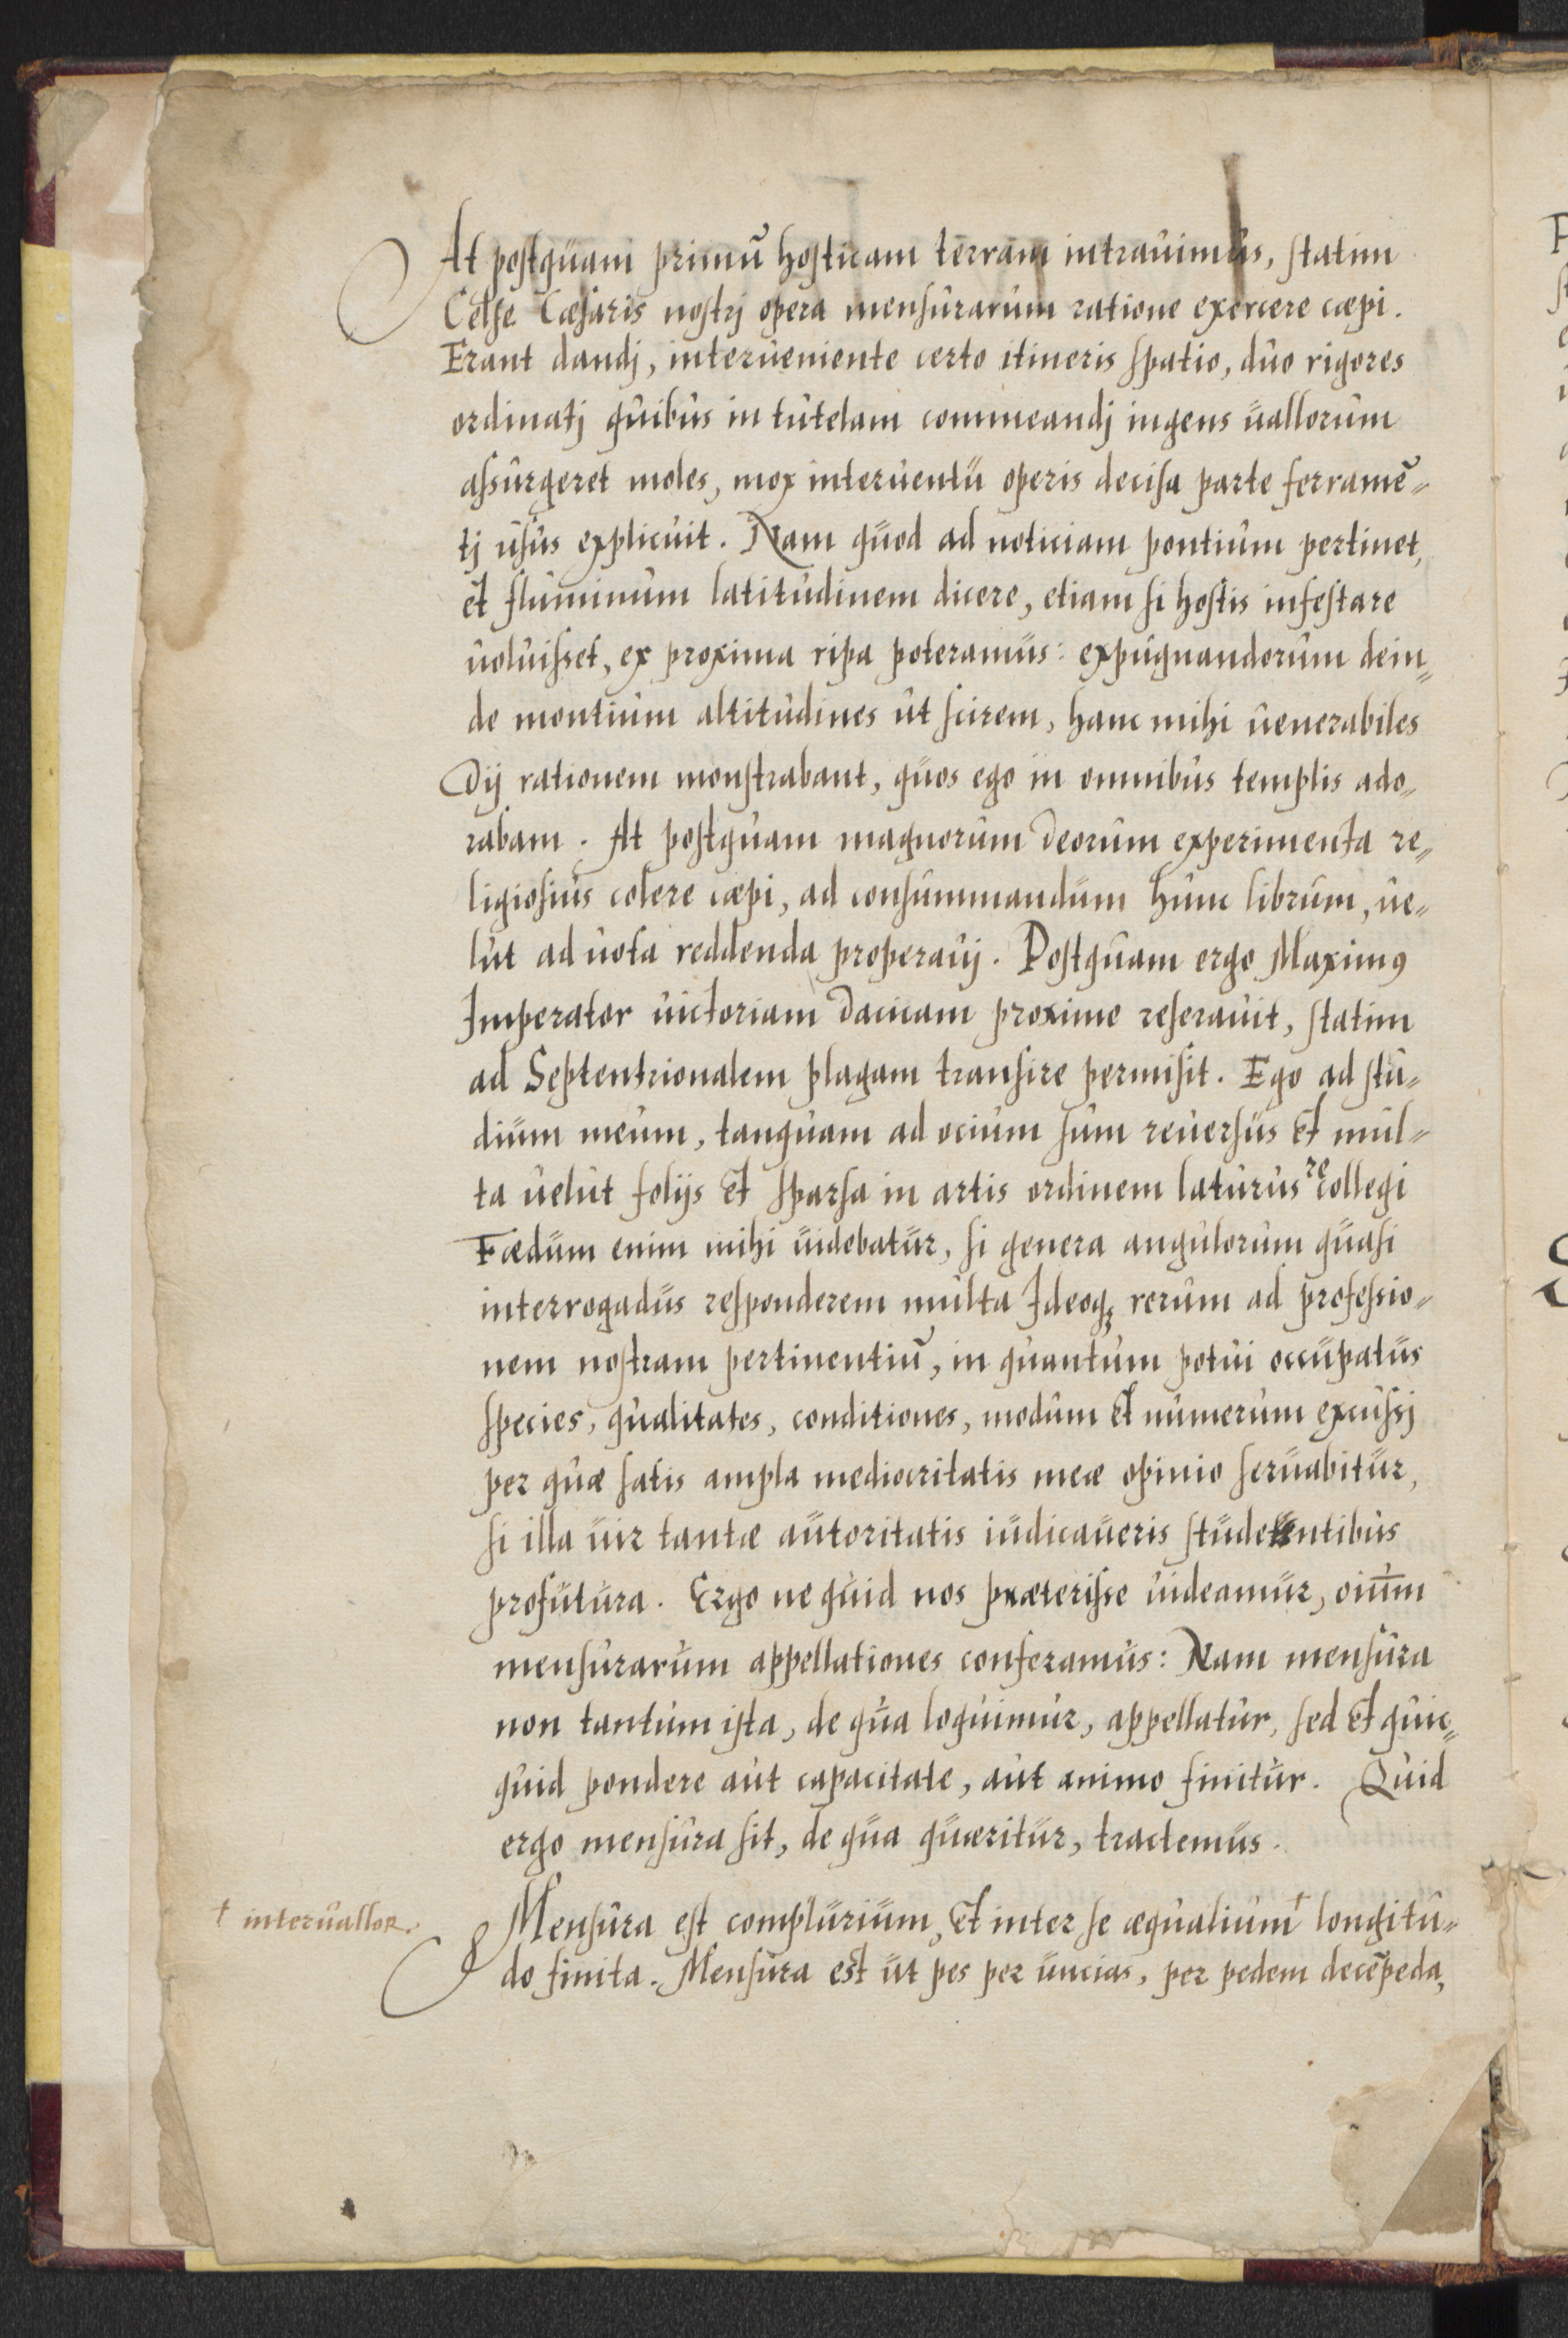 At postquam primũ hosticam terram intrauimus, statim
Celse Cæsaris nostrj opera mensurarum ratione exercere cæpi.
Erant dandj, interueniente certo itineris spatio, duo rigores
ordinatj quibus in tutelam commeandj ingens uallorum
assurgeret moles, mox interuentu operis decisa parte ferramẽ„
tj usus explicuit. Nam quod ad noticiam pontium pertinet,
et fluminum latitudinem dicere, etiam si hostis infestare
uoluisset, ex proxima ripa poteramus: expugnandorum dein„
de montium altitudines ut scirem, hanc mihi uenerabiles
Dij rationem monstrabant, quos ego in omnibus templis ado„
rabam. At postquam magnorum Deorum experimenta re„
ligiosius colere cæpi, ad consummandum hunc librum, ue„
lut ad uota reddenda properauj. Postquam ergo Maximꝰ
Imperator uictoriam Dacicam proxime reserauit, statim
ad Septentrionalem plagam transire permisit. Ego ad stu„
dium meum, tanquam ad ocium sum reuersus Et mul„
ta uelut folijs Et sparsa in artis ordinem laturus recollegi
Fædum enim mihi uidebatur, si genera angulorum quasi
interrogadus responderem multa Ideoqꝫ rerum ad professio„
nem nostram pertinentiũ, in quantum potui occupatus
species, qualitates, conditiones, modum Et numerum excussj
per quæ satis ampla mediocritatis meæ opinio seruabitur,
si illa uir tantæ autoritatis iudicaueris studentibus
profutura. Ergo ne quid nos præterisse uideamur, oium̄
mensurarum appellationes conferamus: Nam mensura
non tantum ista, de qua loquimur, appellatur, sed Et quic„
quid pondere aut capacitate, aut animo finitur. Quid
ergo mensura sit, de qua quæritur, tractemus.
† interualloꝝ.
Mensura est complurium, Et inter se æqualium† longitu„
do finita. Mensura est ut pes per uncias, per pedem decẽpeda,